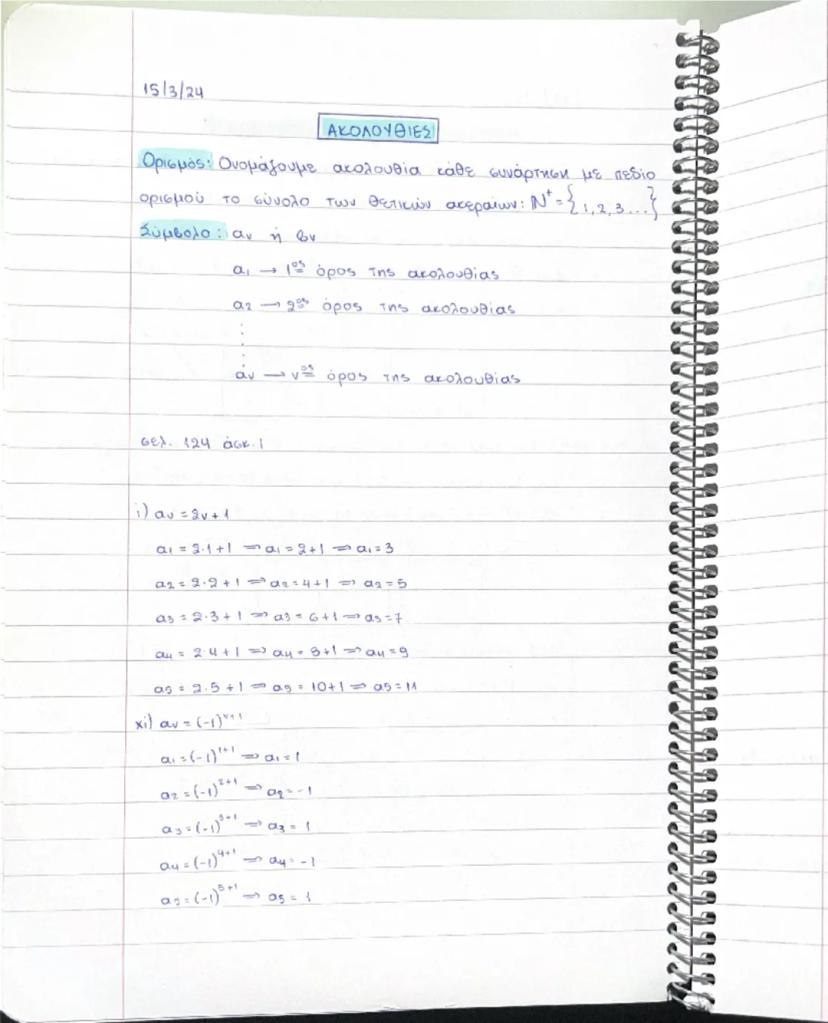 15/3/24
ΑΚΟΛΟΥΘΙΕΣ
Ορισμός: Ονομάζουμε ακολουθία κάθε συνάρτηση με πεδίο
ορισμού το σύνολο των θετικών ακεραίων: ℕ⁺={1,2,3...}
Σύμβολο: αν ή βν
α₁ → 1ος όρος της ακολουθίας
α₂ → 2ος όρος της ακολουθίας
⋮
αν → νος όρος της ακολουθίας
σελ. 124 άσκ. 1
i) αν = 2ν+1
α₁ = 2·1+1 ⇒ α₁ = 2+1 ⇒ α₁ = 3
α₂ = 2·2+1 ⇒ α₂ = 4+1 ⇒ α₂ = 5
α₃ = 2·3+1 ⇒ α₃ = 6+1 ⇒ α₃ = 7
α₄ = 2·4+1 ⇒ α₄ = 8+1 ⇒ α₄ = 9
α₅ = 2·5+1 ⇒ α₅ = 10+1 ⇒ α₅ = 11
xi) αν = (-1)ᵛ⁺¹
α₁ = (-1)¹⁺¹ ⇒ α₁ = 1
α₂ = (-1)²⁺¹ ⇒ α₂ = -1
α₃ = (-1)³⁺¹ ⇒ α₃ = 1
α₄ = (-1)⁴⁺¹ ⇒ α₄ = -1
α₅ = (-1)⁵⁺¹ ⇒ α₅ = 1